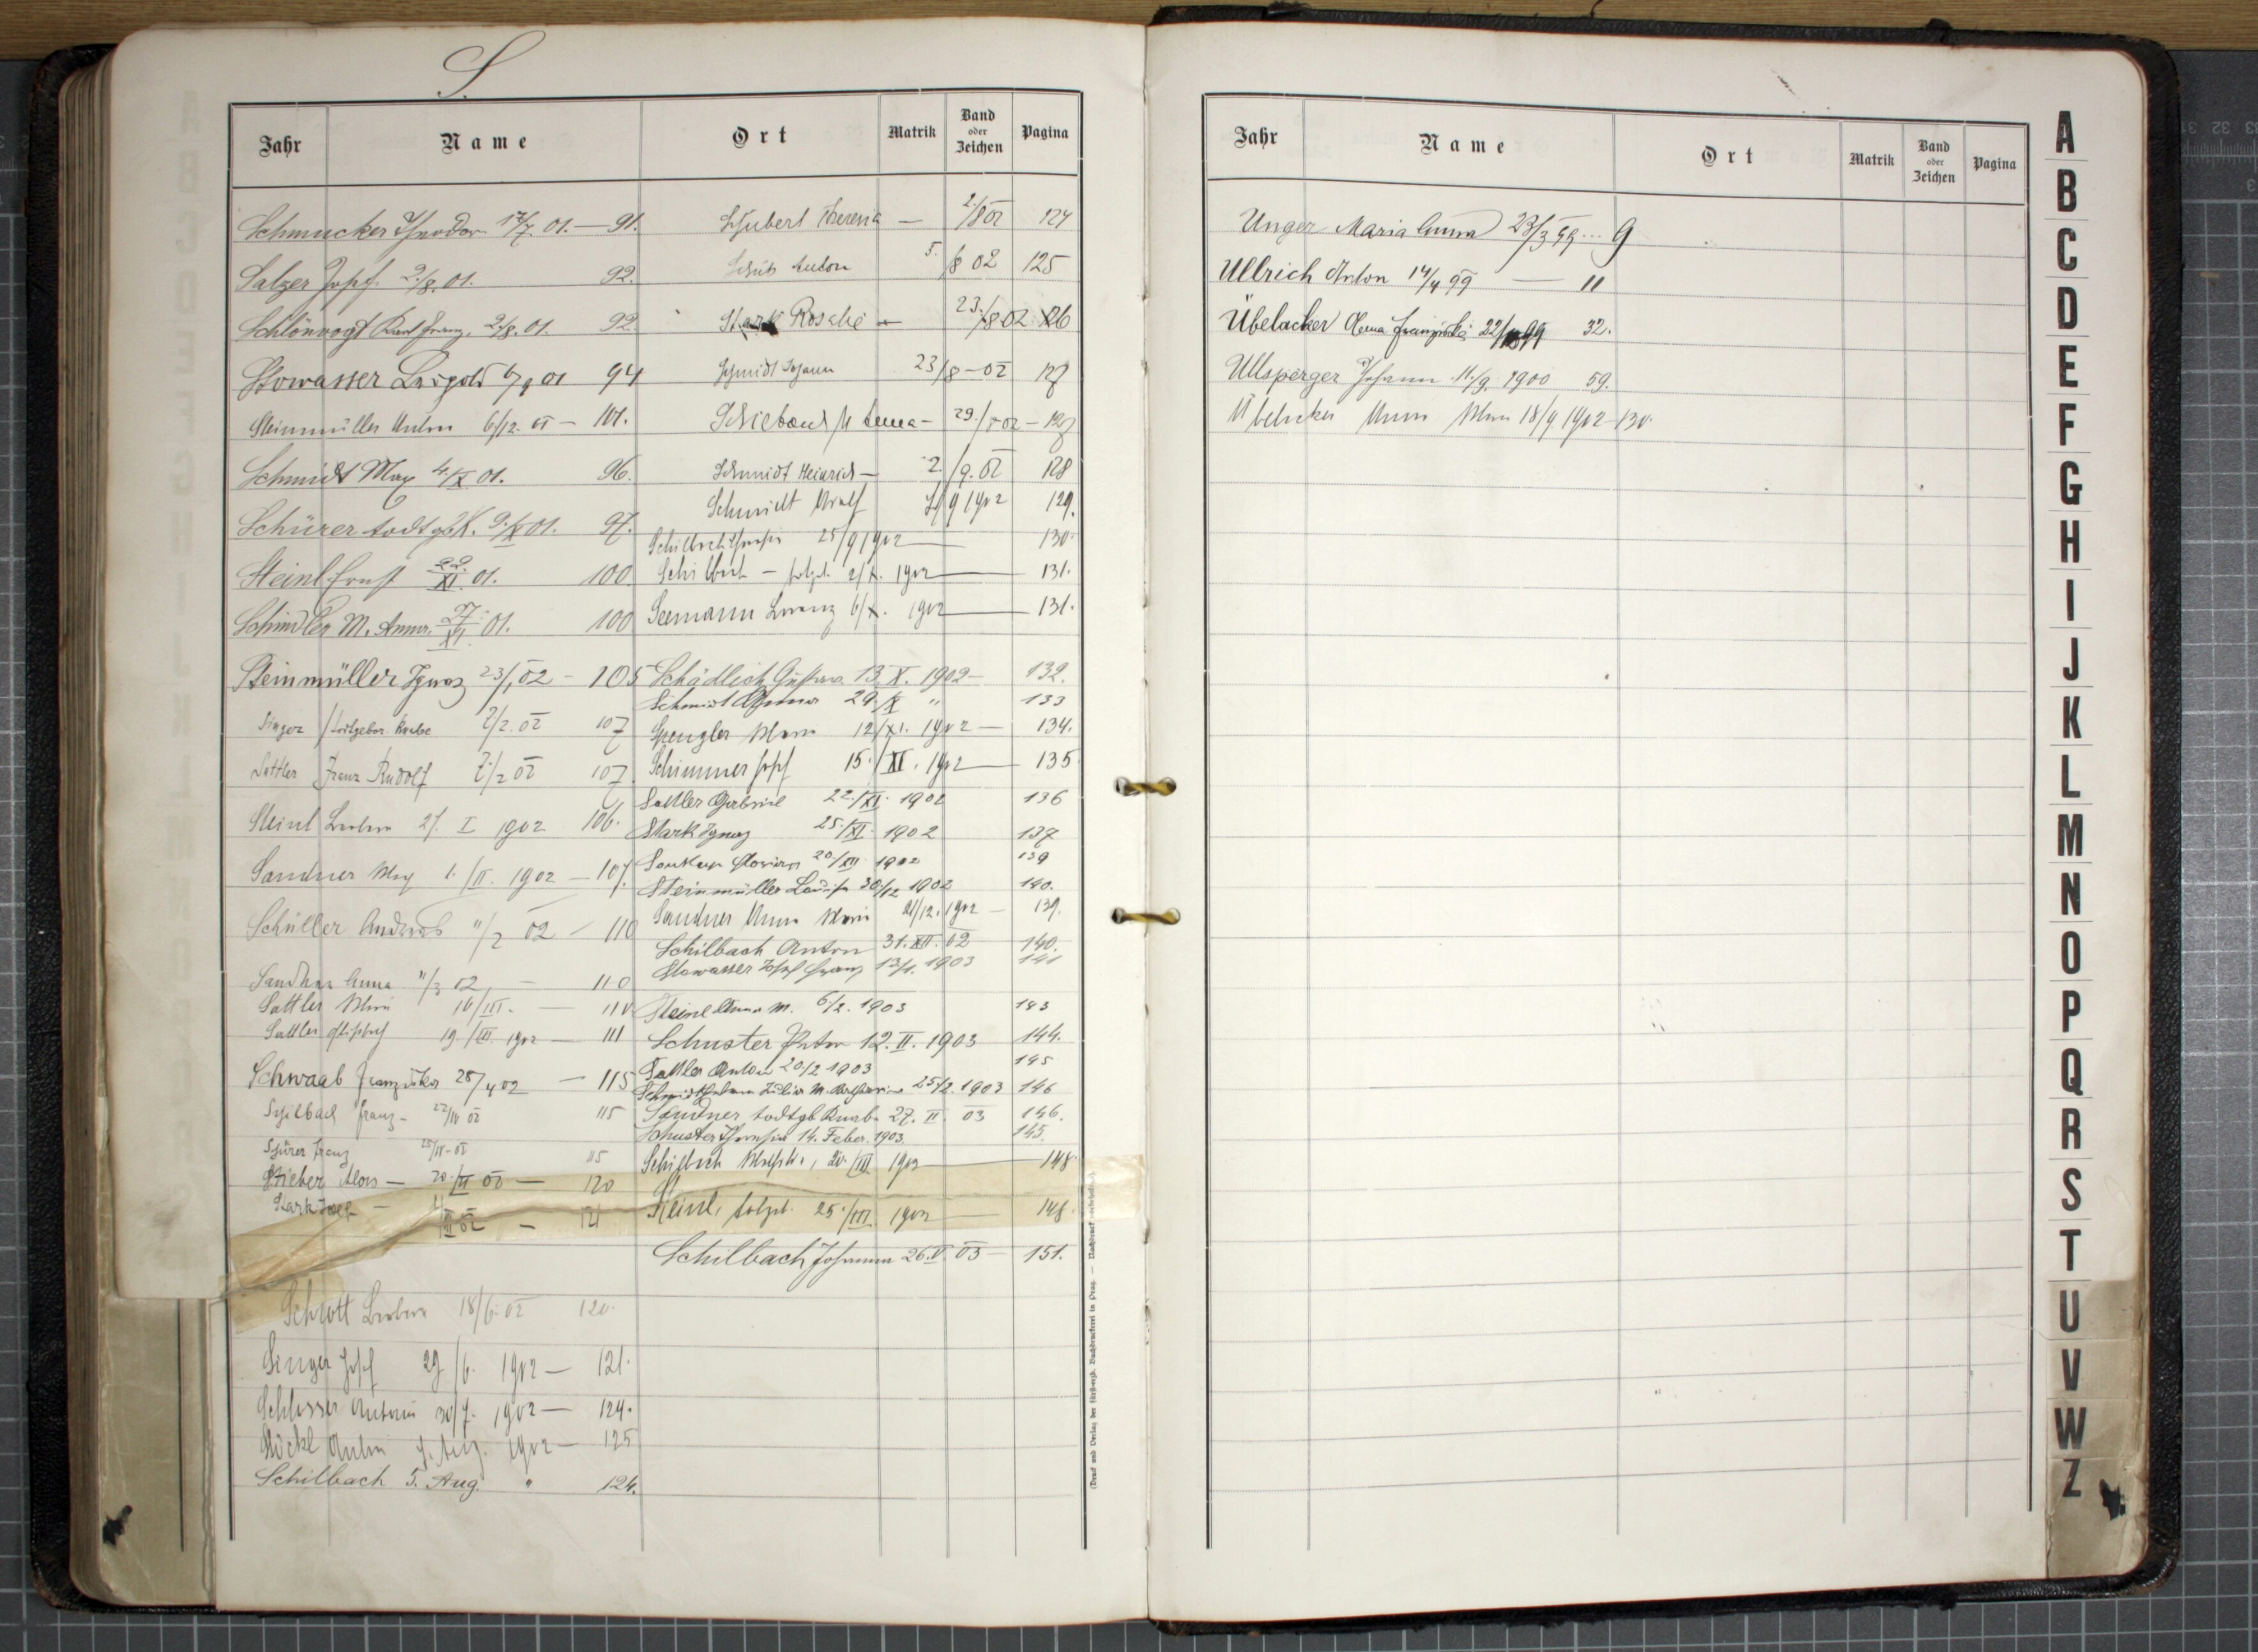 S.
Jahr Name Ort Matrik Band oder Zeichen Pagina
Schmucker Theodor 17/7. 01. — 91.
Salzer Josef. 2./8. 01. 92.
Schlönvogt Karl Franz. 2/8. 01. 92.
Stowasser Leopold 6/9 01 94
Steinmüller Anton 6/12. 01 — 101.
Schmidt Max 4./X 01. 96.
Schürer todtgb. K. 9./X 01. 97.
Steinl Ernst 22./XI. 01. 100
Schindler M. Anna. 27./XI. 01. 100
Steinmüller Ignaz 23/1, 02 — 105
Singer / todtgebor. Knabe 2/2. 02 107
Sattler Franz Rudolf 2./2 02 107
Steinl 27. I 1902 106.
Sandner 1./II. 1902 — 107.
Schüller Andreas "/2 02 — 110
Sandner Anna "/3 02, — 110
Sattler 16/III. — 110
Sattler 19./III. 1902 — 111
Schwaab Franziska 25/4 02 — 115
Schilbach Franz — 22/IV 02 115
Schürer Franz 25/IV-02 115
Stieber Alois — 20./VI 02 — 120
Stark — VI 02 — 121
Schrott 18/6. 02 120.
Singer Josef 29/6. 1902 — 121.
Schlosser 30/7. 1902 — 124.
Stöckl Anton Aug. 1902 — 125
Schilbach 5. Aug. " 124.
Schubert Theresia — 2./8 02 124
Schütz Anton 5./8 02 125
Stark Rosalie — 23./8 02 126
Schmidt Johann 23/8-02 127
M Anna — 29./8 02 — 127
Schmidt Heinrich — 2./9. 02 128
Schmidt Adolf 9 1902 129.
Schilbach 25/9 1902 — 130.
Schilbach — totgeb. 2/X. 1902 — 131.
Seemann Lorenz 6/X. 1902 — 131.
Schädlich Gustav. 13. X. 1902 — 132.
Schmidt 29./X " 133
Spengler 12/XI. 1902 — 134.
Schimmer Josef 15./XI. 1902 — 135
Sattler Gabriel 22./XI. 1902 136
Stark Ignaz 25./XI. 1902 137
20./XII 1902 139
Steinmüller 30./12 1902 140.
Sandner Anna Marie 21/12. 1902 — 139.
Schilbach Anton 31. XII. 02 140.
Stowasser Josef Franz 13/1. 1903 141
Steinl Anna M. 6./2. 1903 143
Schuster Peter 12. II. 1903 144.
Sattler Anton 20/2 1903 145
M. 25/2. 1903 146
Sandner todtgb Knabe 27. II. 03 146.
Schuster 14. Feber. 1903. 145.
Schilbach 20./III 1903 — 148
Steinl, totgeb. 25./III. 1903 — 148
Schilbach Johanna 26. V. 03 — 151.
(Druck und Verlag der fürsterzb. Buchdruckerei in Prag. — Nachdruck verboten.)
Jahr Name Ort Matrik Band oder Zeichen Pagina
Unger Maria Anna 23/3 99 ... 9
Ullrich Anton 14/4 99 — 11
Übelacker Franziska 22/ 99 32.
Ullsperger Johann 11./9. 1900 59.
Übelacker Anna 18/9 1902 — 130.
A
B
C
D
E
F
G
H
I
J
K
L
M
N
O
P
Q
R
S
T
U
V
W
Z